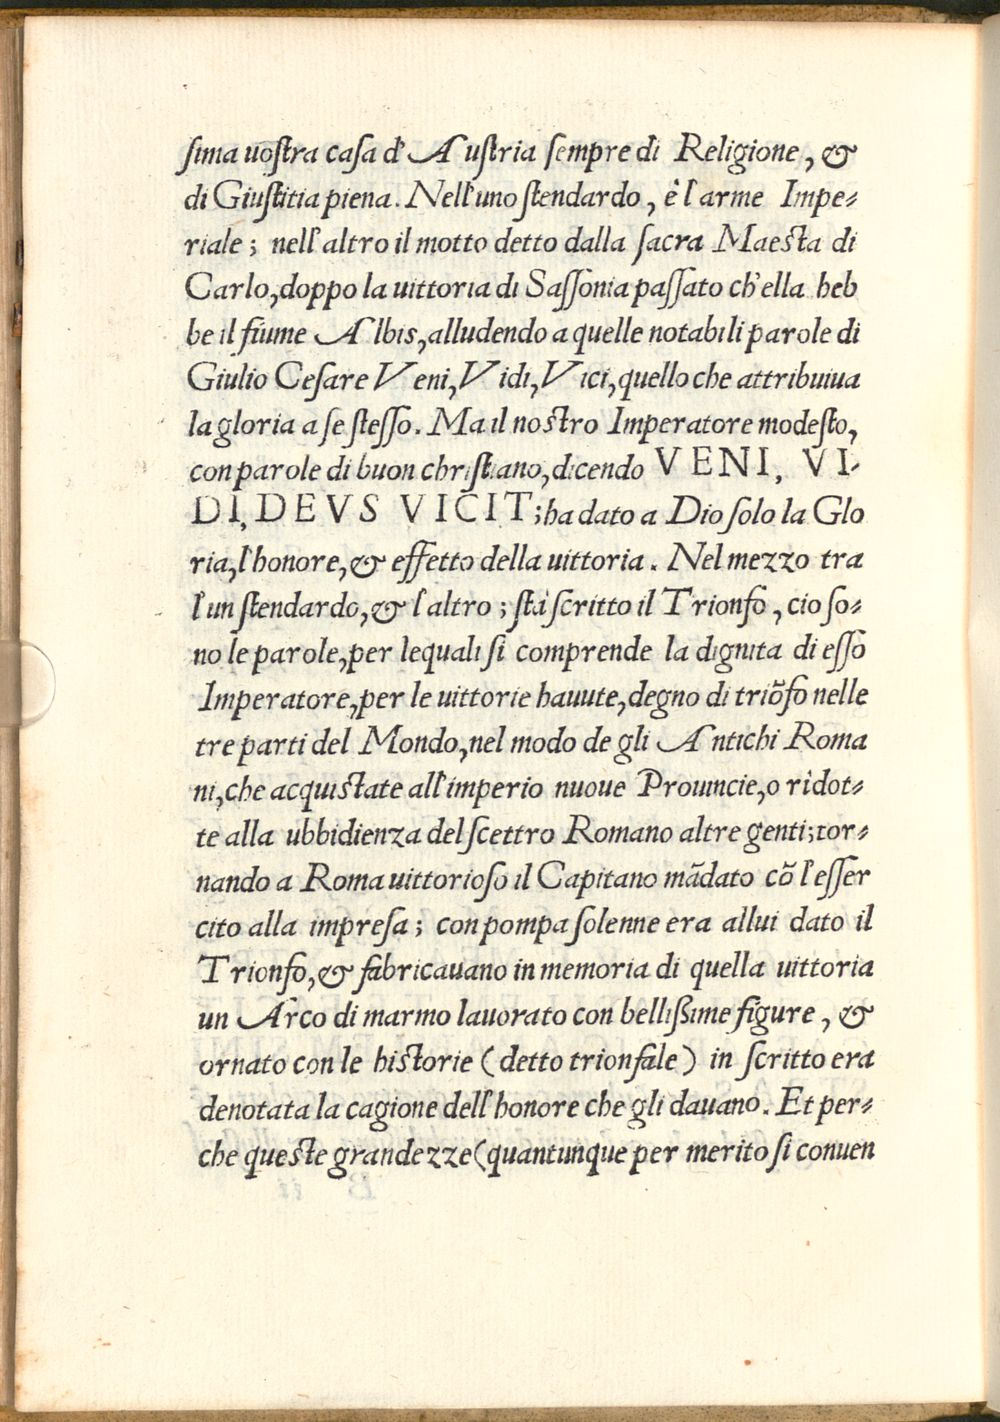 sima uostra casa d'Austria sempre di Religione, &
di Giustitia piena. Nell'uno stendardo, è l'arme Impe-
riale; nell'altro il motto detto dalla sacra Maesta di
Carlo, doppo la uittoria di Sassonia passato ch'ella heb
be il fiume Albis, alludendo a quelle notabili parole di
Giulio Cesare Veni, Vidi, Vici, quello che attribuiua
la gloria a se stesso. Ma il nostro Imperatore modesto,
con parole di buon christiano, dicendo VENI, VI-
DI, DEVS VICIT; ha dato a Dio solo la Glo
ria, l'honore, & effetto della uittoria. Nel mezzo tra
l'un stendardo, & l'altro; stà scritto il Trionfo, cio so-
no le parole, per lequali si comprende la dignita di esso
Imperatore, per le uittorie hauute, degno di triõfo nelle
tre parti del Mondo, nel modo de gli Antichi Roma
ni, che acquistate all'imperio nuoue Prouincie, o ridot-
te alla ubbidienza del scettro Romano altre genti; tor-
nando a Roma uittorioso il Capitano mãdato cõ l'esser
cito alla impresa; con pompa solenne era allui dato il
Trionfo, & fabricauano in memoria di quella uittoria
un Arco di marmo lauorato con bellissime figure, &
ornato con le historie (detto trionfale) in scritto era
denotata la cagione dell'honore che gli dauano. Et per-
che queste grandezze (quantunque per merito si conuen